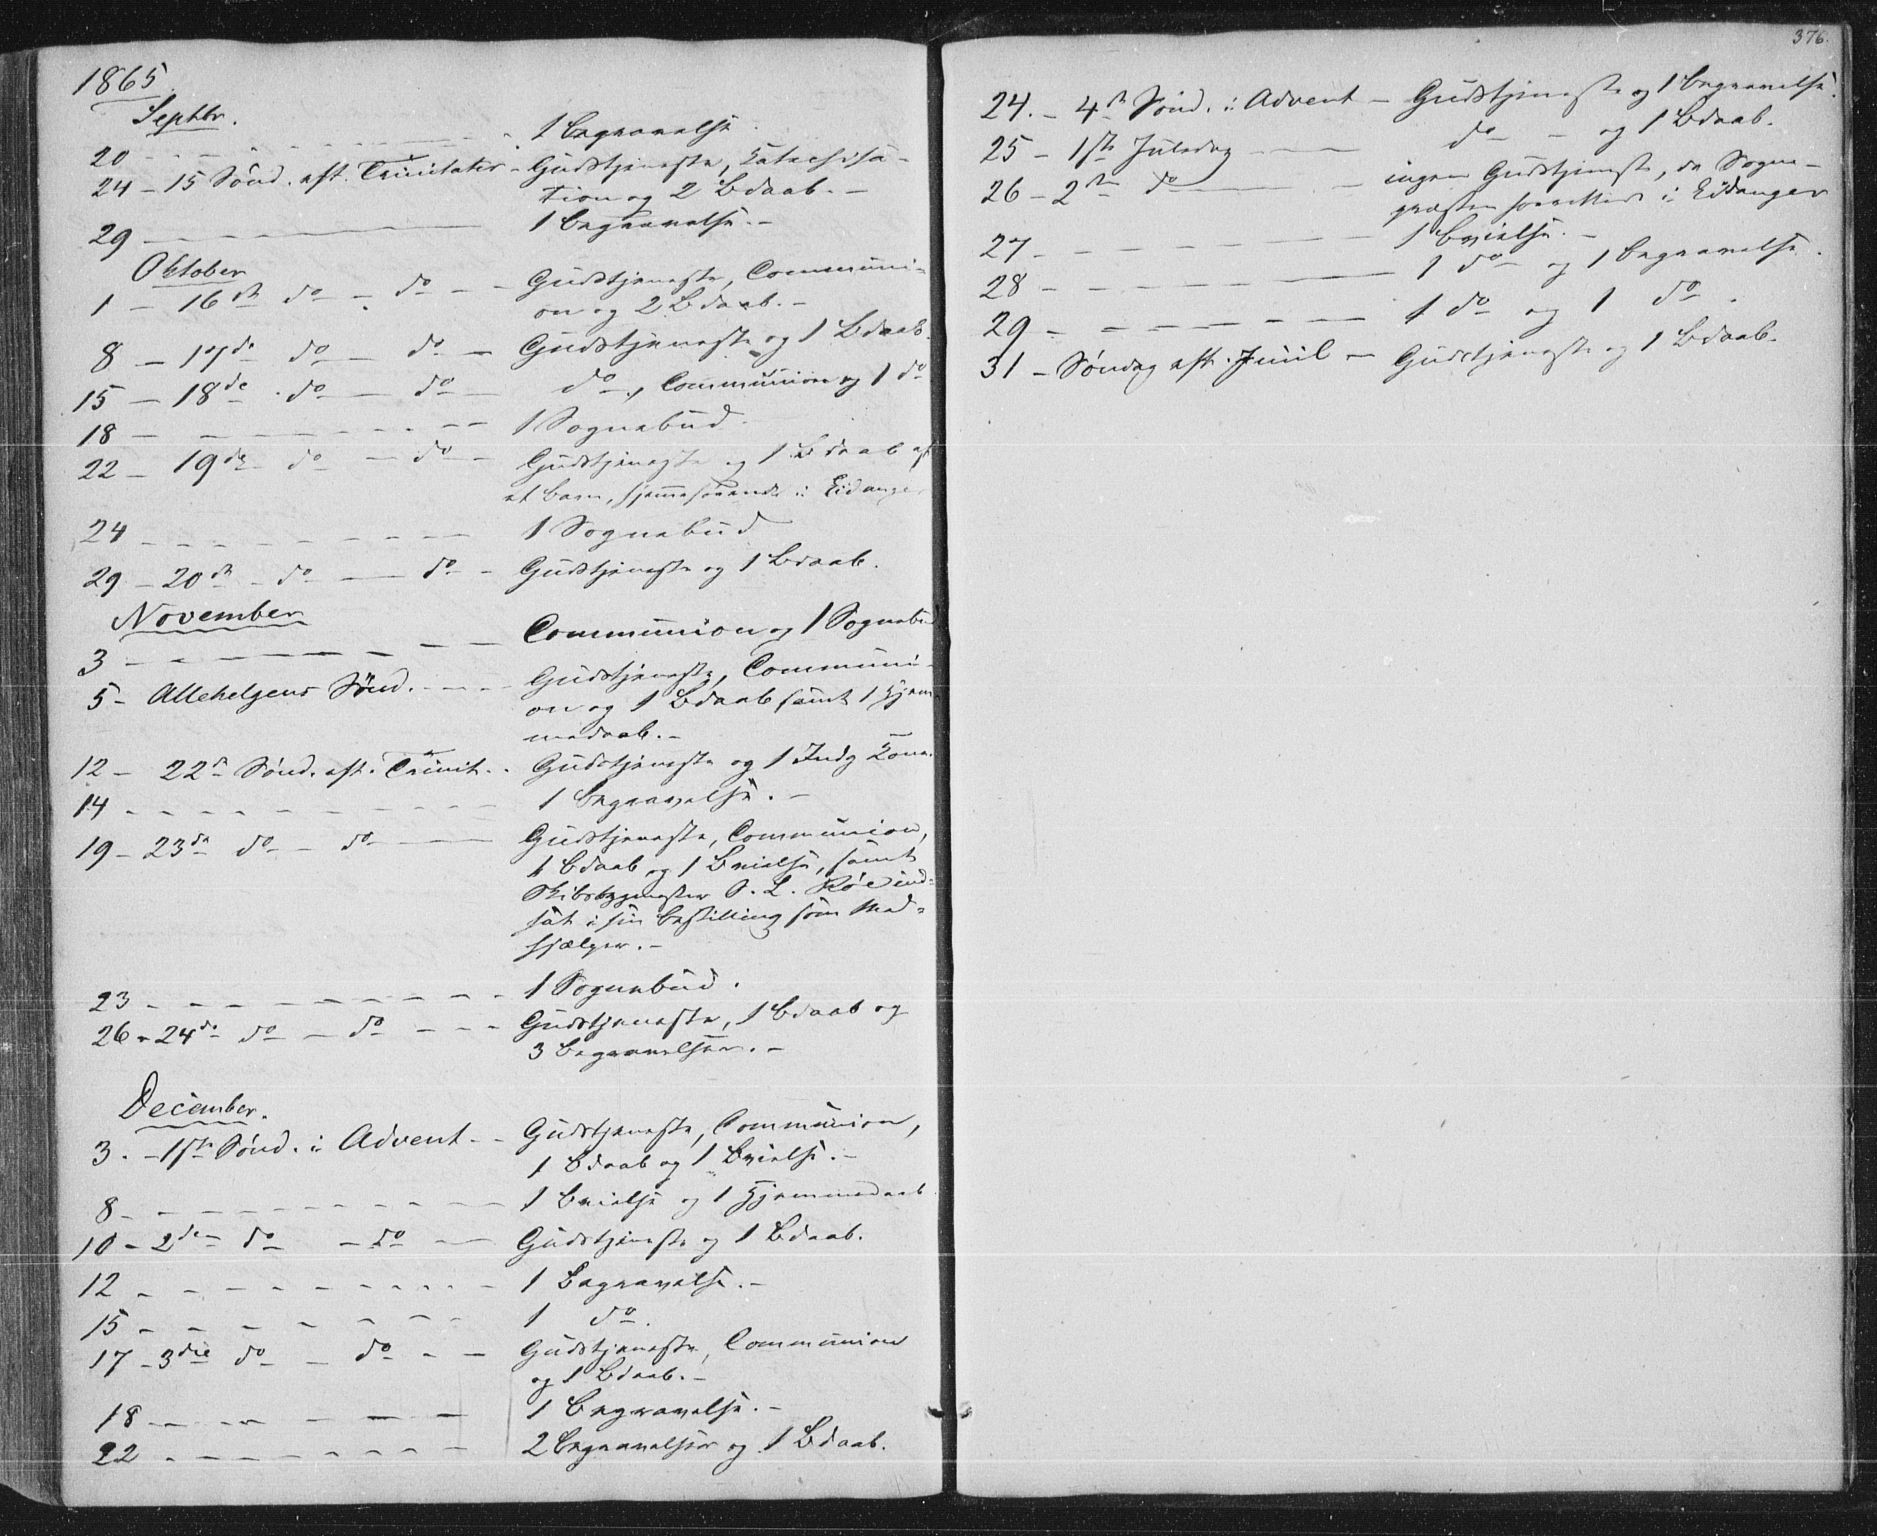 1865.
Septbr.
20 - - - - - - 1 Begravelse.
24 - 15 Sønd. eft. Trinitatis - Gudstjeneste, Katechisa-
tion og 2 Bdaab. -
29 - 1 Begravelse. -
Oktober
1 - 16de do - do - - Gudstjeneste, Communi-
on og 2 Bdaab. -
8 - 17de do - do - Gudstjeneste og 1 Bdaab.
15 - 18de do - do - do, Communion og 1 do
18 - - - - - - 1 Sognebud.
22 - 19de do - do - Gudstjeneste og 1 Bdaab af
et Barn, hjemmehørende i Eidanger
24 - - - - - - 1 Sognebud
29 - 20de - do - do - Gudstjeneste og 1 Bdaab.
November
3 - - - - - - Communion og 1 Sognebud
5 - Allehelgens Sønd. - - - Gudstjeneste, Communi-
on og 1 Bdaab samt 1 Hjem-
medaab. -
12 - 22de Sønd. eft. Trinit. - Gudstjeneste og 1 Indg Kone.
14 - - - - - - 1 Begravelse. -
19 - 23de do - do - Gudstjeneste, Communion,
1 Bdaab og 1 Bvielse, samt
Skibsbygmester P. L. Røe ind-
sat i sin Bestilling som Med-
hjælper. -
23 - - - - - - 1 Sognebud.
26 - 24de do - do - - - Gudstjeneste, 1 Bdaab og
3 Begravelser. -
December.
3. - 1ste Sønd. i Advent - - Gudstjeneste, Communion,
1 Bdaab og 1 Bvielse. -
8 - - - - - - 1 Bvielse og 1 Hjemmedaab
10 - 2den do - do - Gudstjeneste og 1 Bdaab.
12 - - - - - - 1 Begravelse. -
15 - - - - - - 1 do.
17 - 3die do - do - - Gudstjeneste, Communion
og 1 Bdaab. -
18 - - - - - 1 Begravelse. -
22 - - - - - - 2 Begravelser og 1 Bdaab.
376.
24. - 4de Sønd. i Advent - Gudstjeneste og 1 Begravelse.
25 - 1ste Juledag - do - og 1 Bdaab.
26 - 2den do - - ingen Gudstjeneste, da Sogne-
præsten forrettede i Eidanger
27 - - - - - - 1 Bvielse. -
28 - - - - - - 1 do og 1 Begravelse.
29 - - - - - - 1 do og 1 do.
31 - Søndag eft. Juul - Gudstjeneste og 1 Bdaab.